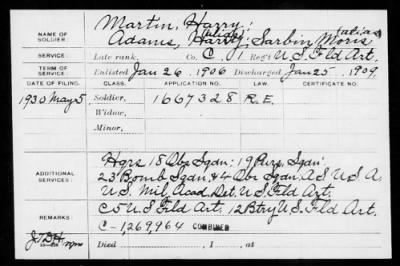 Martin, Harry;
NAME OF SOLDIER: Adams, Harry; (alias) Sarbin Moris (alias)
SERVICE: Late rank, Co. C, 1 Reg't U.S. Fld Art.
TERM OF SERVICE: Enlisted Jan 26, 1906 Discharged Jan 25, 1909.
DATE OF FILING. CLASS. APPLICATION NO. LAW. CERTIFICATE NO.
1930 May 5 Soldier, 1667328 R.E.
Widow,
Minor,
Hqrs 18 Obs Sqan; 19 Purs. Sqan;
ADDITIONAL SERVICES: 23 Bomb Sqan, & 4 Obs Sqan, A.S. U.S.A.
U.S. Mil. Acad. Det. U.S. Fld Art.
C 5 U.S. Fld Art. 12 Btry U.S. Fld Art.
REMARKS: C-1269964 COMBINED
Died , 1 , at